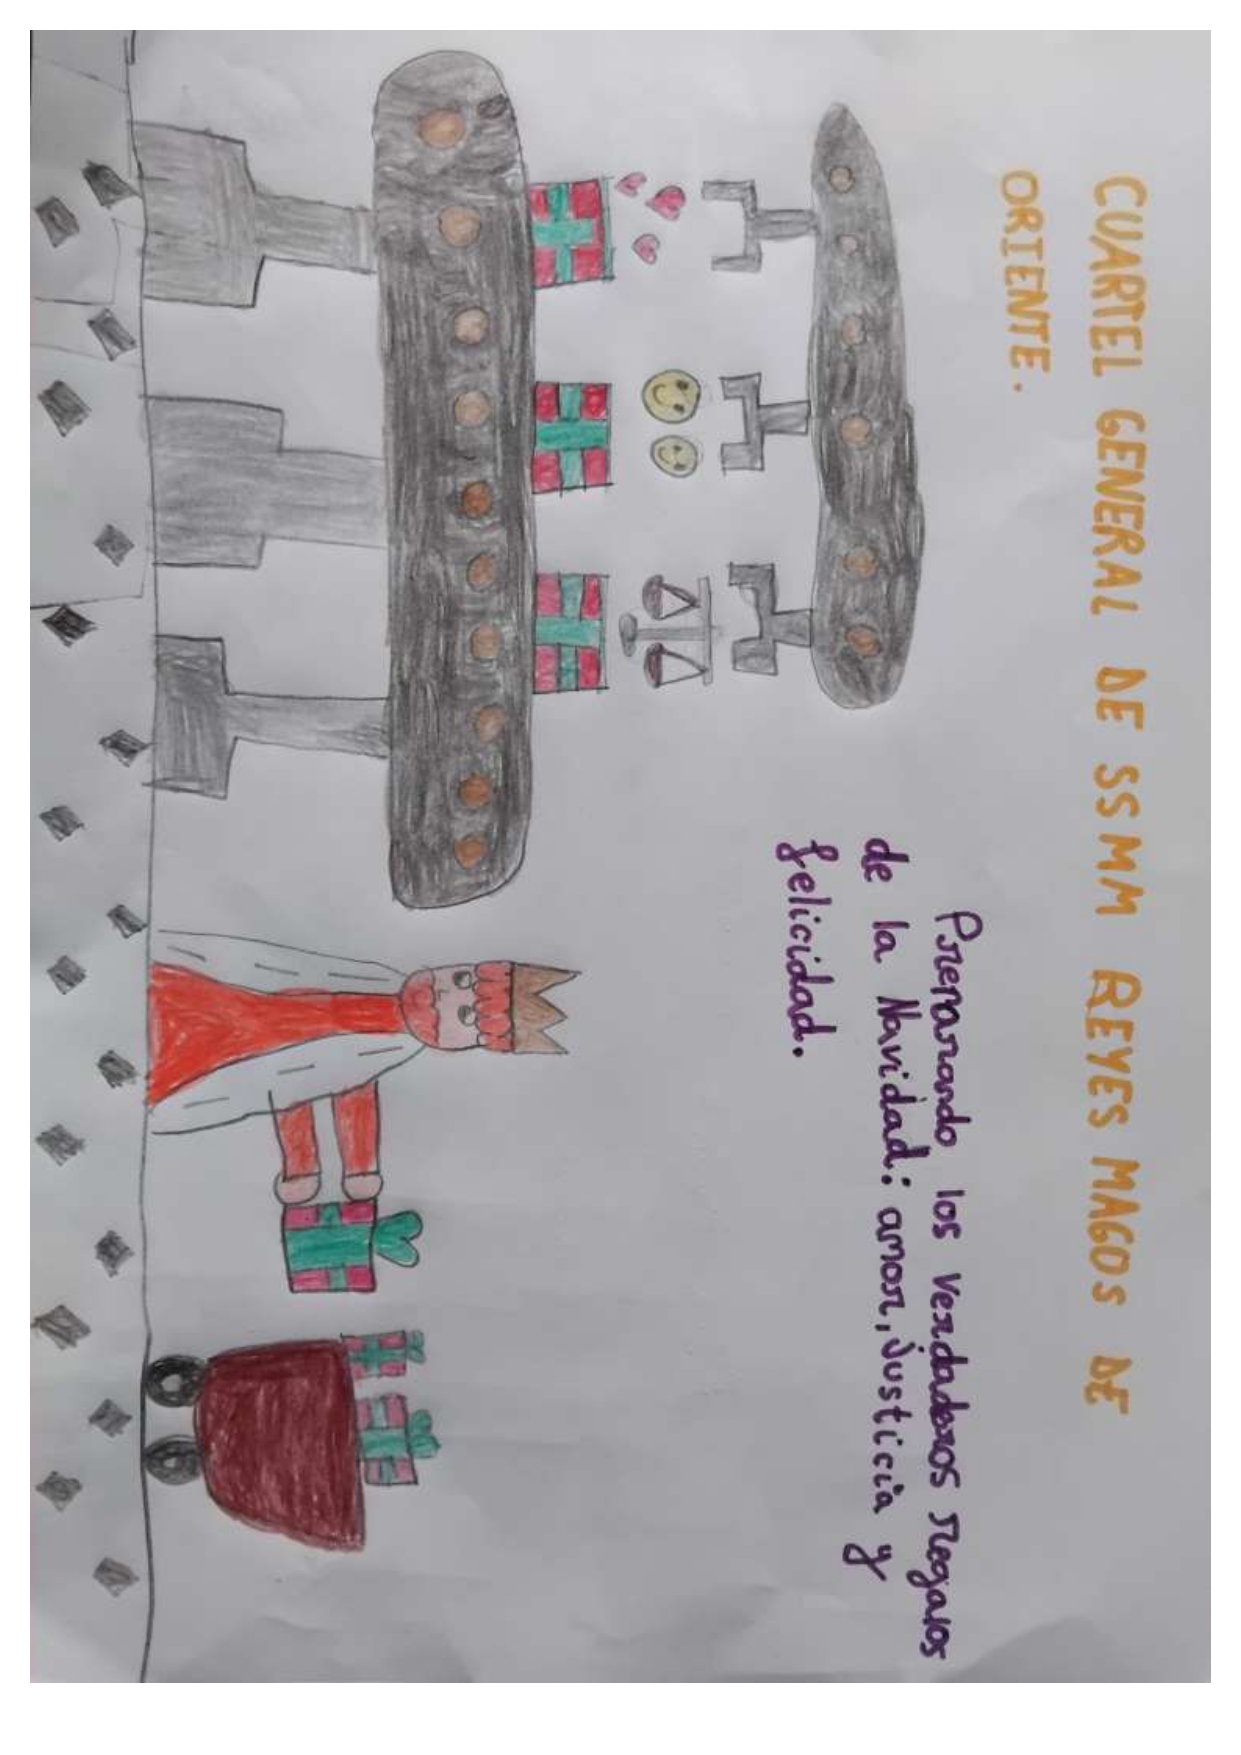 CUARTEL GENERAL DE SSMM REYES MAGOS DE
ORIENTE.
Preparando los verdaderos regalos
de la Navidad: amor, justicia y
felicidad.